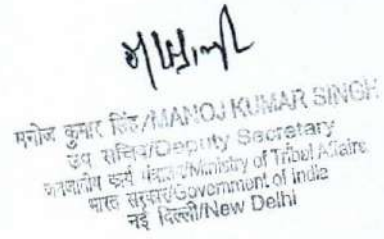 मनोज कुमार सिंह/MANOJ KUMAR SINGH
उप सचिव/Deputy Secretary
जनजातीय कार्य मंत्रालय/Ministry of Tribal Affairs
भारत सरकार/Government of India
नई दिल्ली/New Delhi